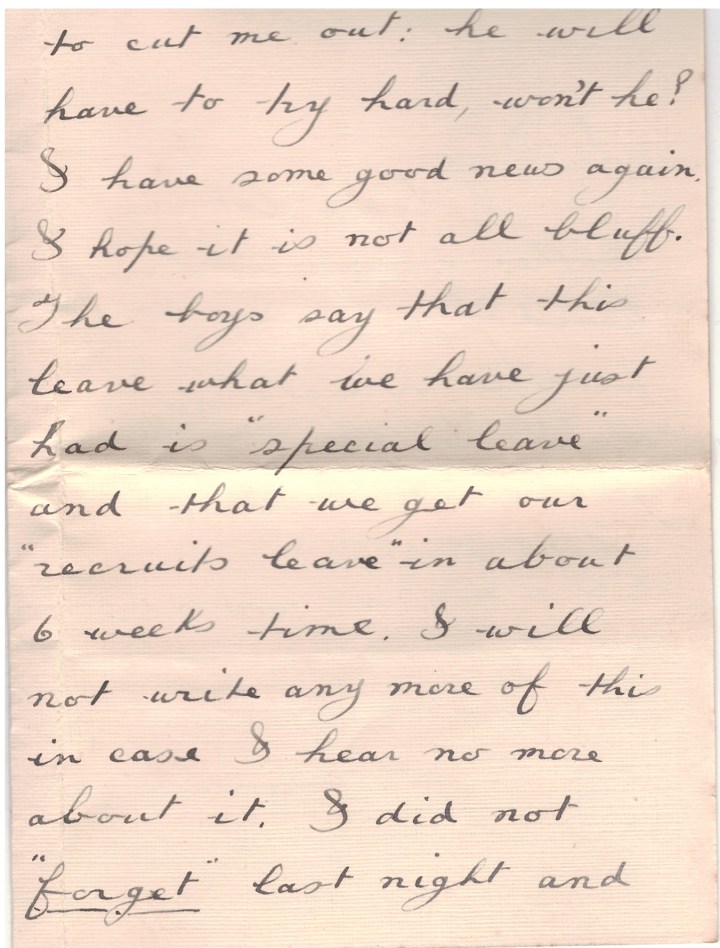 to cut me out: he will
have to try hard, won't he?
I have some good news again.
I hope it is not all bluff.
The boys say that this
leave what we have just
had is "special leave"
and that we get our
"recruits leave" in about
6 weeks time. I will
not write any more of this
in case I hear no more
about it. I did not
"forget" last night and